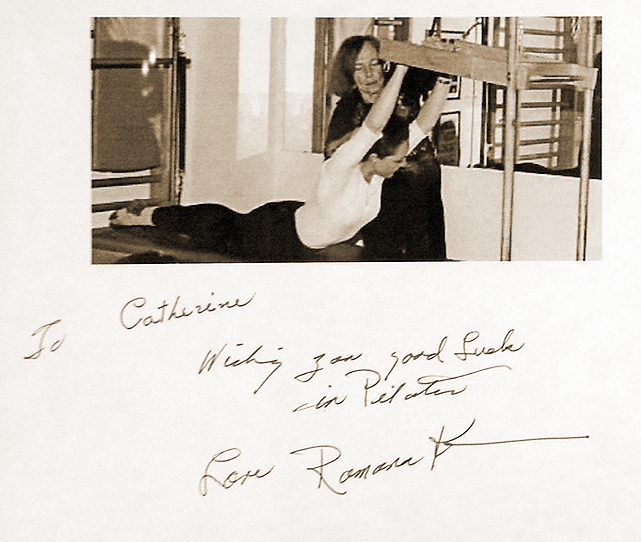 To Catherine
Wishing you good Luck
in Pilates
Love Romana K